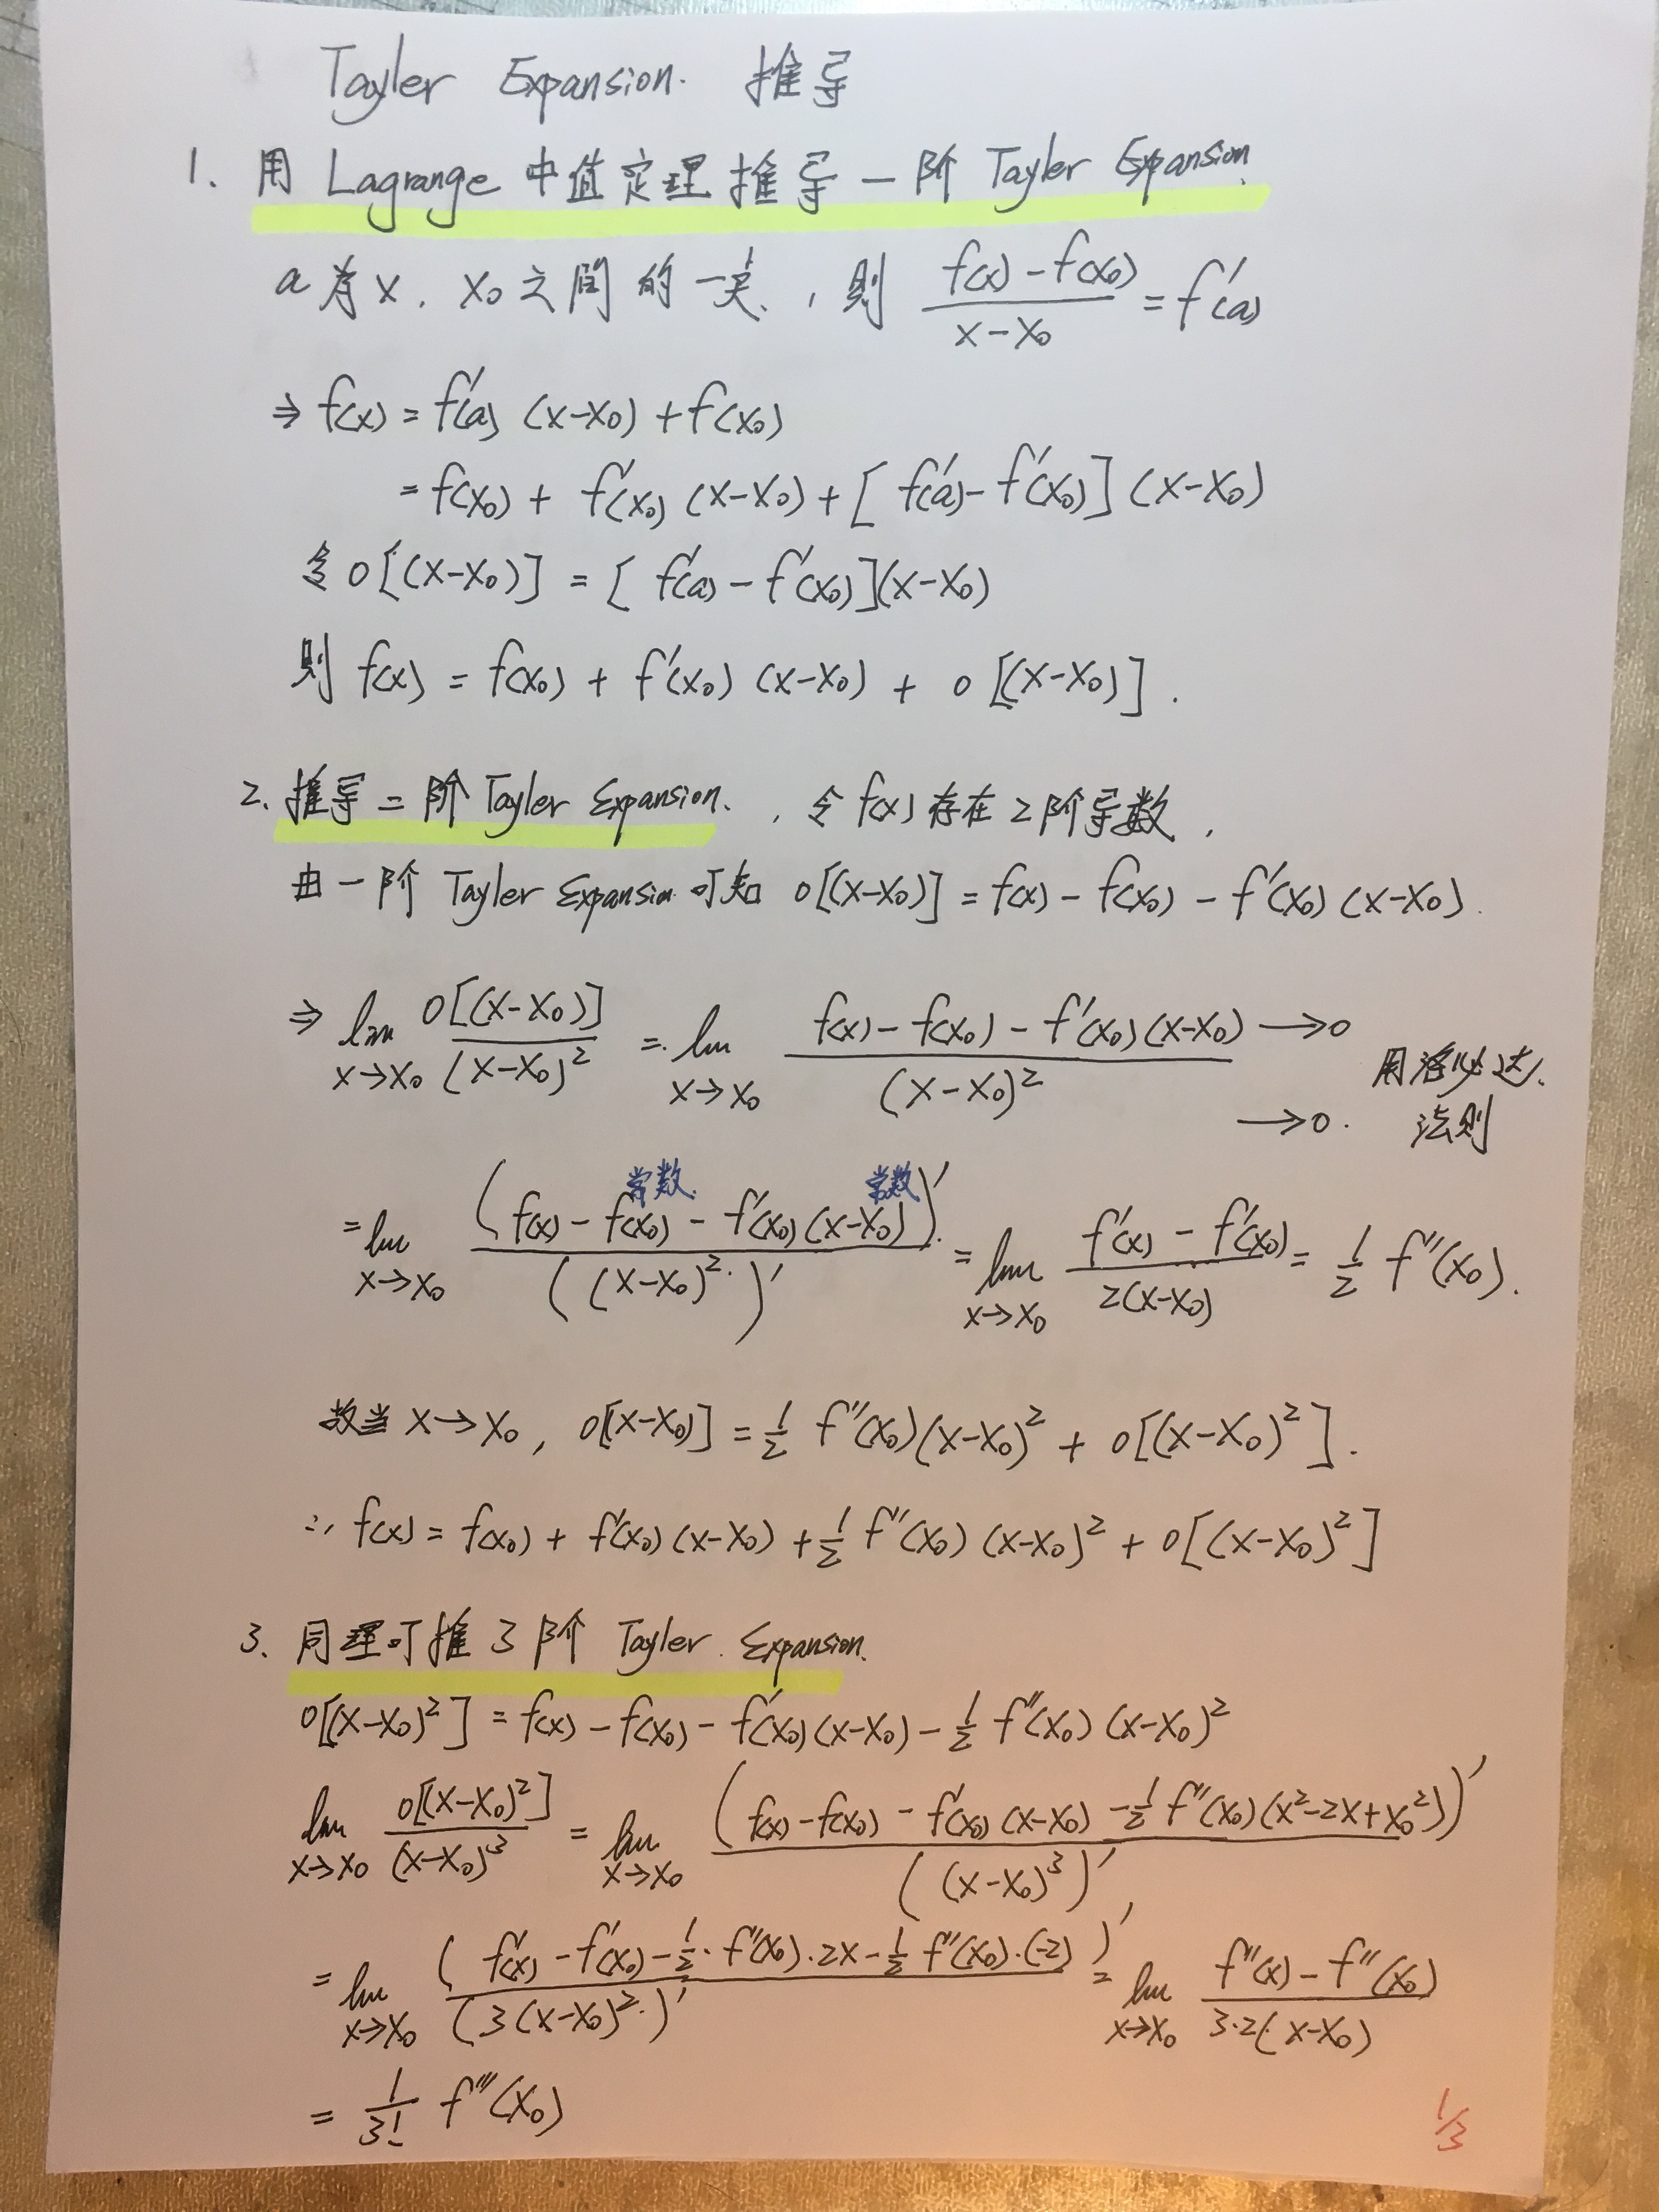 Tayler Expansion. 推导
1. 用 Lagrange 中值定理推导一阶 Tayler Expansion.
a 为 x, x₀ 之间的一点, 则 (f(x) - f(x₀))/(x - x₀) = f'(a)
⇒ f(x) = f'(a) (x-x₀) + f(x₀)
= f(x₀) + f'(x₀) (x-x₀) + [f'(a) - f'(x₀)] (x-x₀)
令 o[(x-x₀)] = [f'(a) - f'(x₀)](x-x₀)
则 f(x) = f(x₀) + f'(x₀) (x-x₀) + o[(x-x₀)].
2. 推导二阶 Tayler Expansion. , 令 f(x) 存在 2 阶导数,
由一阶 Tayler Expansion 可知 o[(x-x₀)] = f(x) - f(x₀) - f'(x₀) (x-x₀).
⇒ lim x→x₀ o[(x-x₀)]/(x-x₀)² = lim x→x₀ (f(x) - f(x₀) - f'(x₀)(x-x₀))/(x-x₀)² →0 →0. 用洛必达法则
常数. 常数
= lim x→x₀ (f(x) - f(x₀) - f'(x₀)(x-x₀))'/((x-x₀)²)' = lim x→x₀ (f'(x) - f'(x₀))/2(x-x₀) = 1/2 f''(x₀).
故当 x→x₀, o[x-x₀] = 1/2 f''(x₀)(x-x₀)² + o[(x-x₀)²].
∴ f(x) = f(x₀) + f'(x₀)(x-x₀) + 1/2 f''(x₀) (x-x₀)² + o[(x-x₀)²]
3. 同理可推 3 阶 Tayler Expansion.
o[(x-x₀)²] = f(x) - f(x₀) - f'(x₀)(x-x₀) - 1/2 f''(x₀) (x-x₀)²
lim x→x₀ o[(x-x₀)²]/(x-x₀)³ = lim x→x₀ (f(x) - f(x₀) - f'(x₀)(x-x₀) - 1/2 f''(x₀)(x²-2x+x₀²))'/((x-x₀)³)'
= lim x→x₀ (f'(x) - f'(x₀) - 1/2 · f''(x₀)·2x - 1/2 f''(x₀)·(-2))'/(3(x-x₀)²)' = lim x→x₀ (f''(x) - f''(x₀))/3·2(x-x₀)
= 1/3! f'''(x₀)
1/3